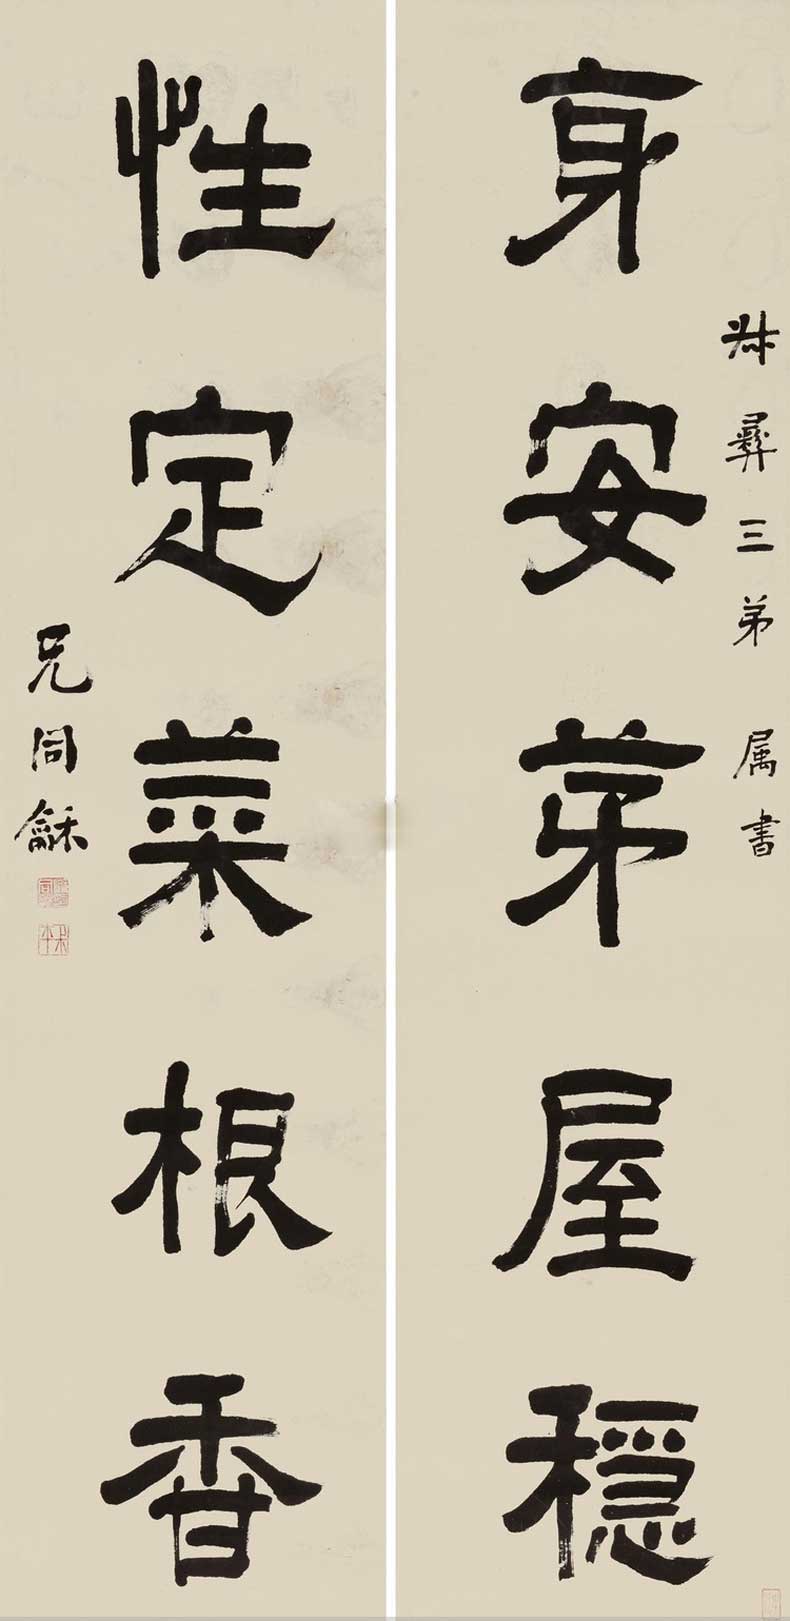 叔彝三弟属書
身安茅屋穩
性定菜根香
兄同龢